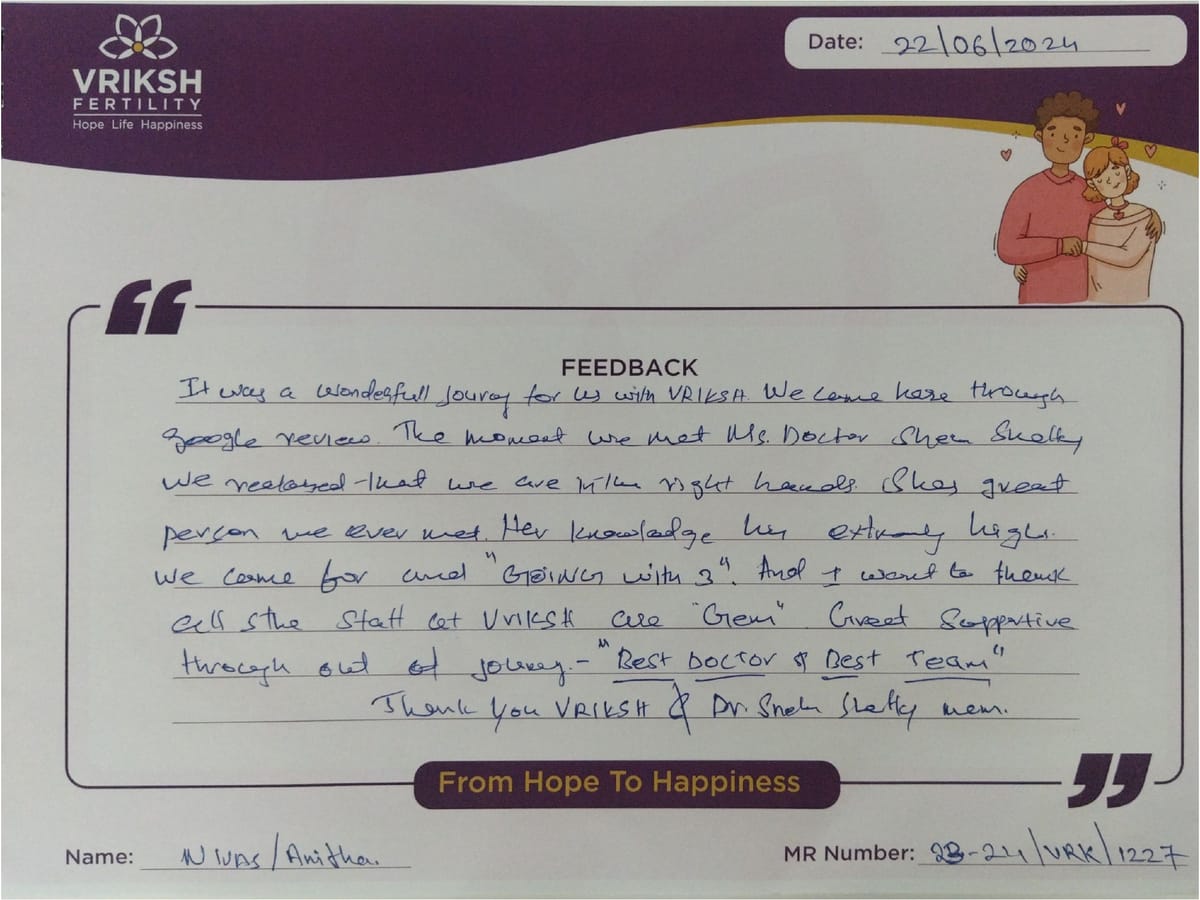 VRIKSH
FERTILITY
Hope Life Happiness
Date: 22/06/2024
FEEDBACK
It was a wonderfull journey for us with VRIKSH. We came here through
google review. The moment we met Ms. Doctor Sneha Shetty
we realized that we are in the right hands. Shes great
person we ever met. Her knowledge her extremly high.
We came for and "GOING with 3". And I want to thank
all the staff at VRIKSH are "Gem". Great Supportive
through out of journey. - "BEST DOCTOR & BEST TEAM"
Thank you VRIKSH & Dr. Sneha Shetty mam.
From Hope To Happiness
Name: NIVAS/Anitha.
MR Number: 23-24/VRK/1227